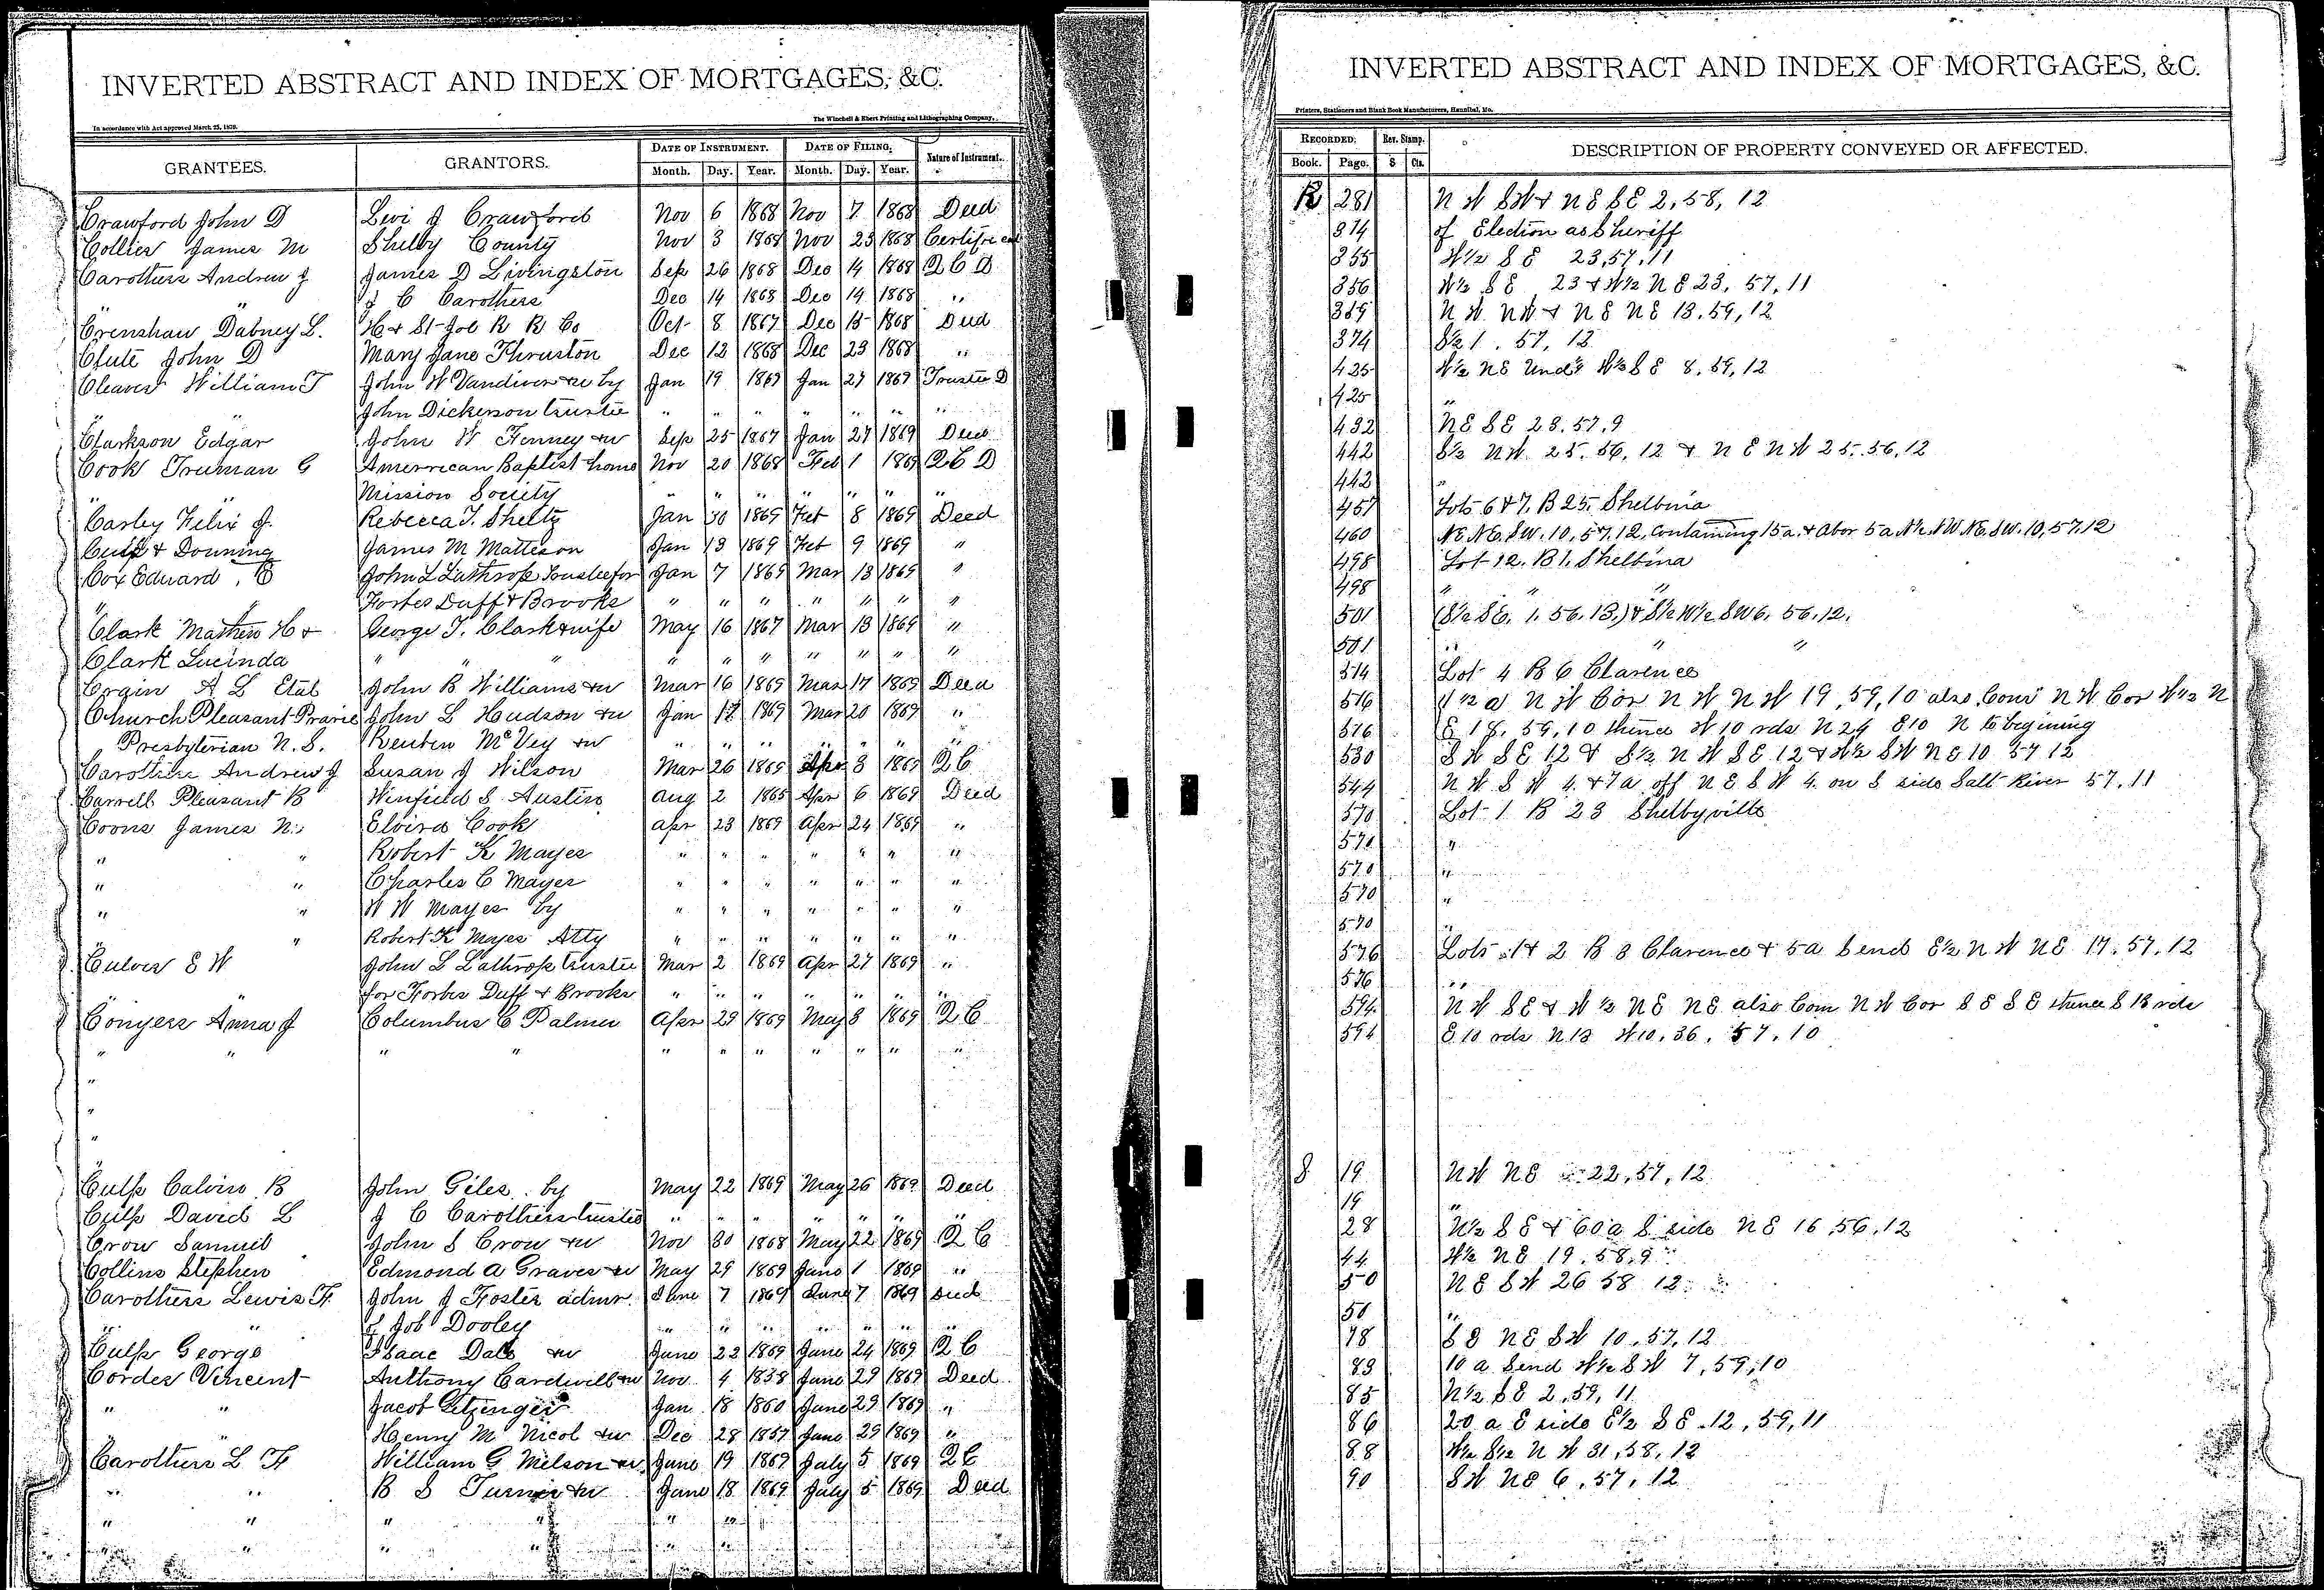 INVERTED ABSTRACT AND INDEX OF MORTGAGES, &C.
In accordance with Act approved March 25, 1879.
The Winchell & Ebert Printing and Lithographing Company,
GRANTEES. GRANTORS. DATE OF INSTRUMENT. DATE OF FILING. Nature of Instrument.
Month. Day. Year. Month. Day. Year.
Crawford John D Levi J Crawford Nov 6 1868 Nov 7 1868 Deed
Collier James M Shelby County Nov 3 1868 Nov 23 1868 Certificat
Carothers Andrew J James D Livingston Sep 26 1868 Dec 14 1868 Q C D
" J C Carothers Dec 14 1868 Dec 14 1868 "
Crenshaw Dabney L. H & St Joe R R Co Oct 8 1867 Dec 15 1868 Deed
Clute John D Mary Jane Thruston Dec 12 1868 Dec 23 1868 "
Cleaver William T John W Vandiver &w by Jan 19 1869 Jan 27 1869 Trustee D
" " John Dickerson trustee " " " " " " "
Clarkson Edgar John W Finney &w Sep 25 1867 Jan 27 1869 Deed
Cook Truman G Amerrican Baptist home Nov 20 1868 Feb 1 1869 Q C D
" " Mission Society " " " " " " "
Casley Felix J. Rebecca T. Sheltz Jan 30 1869 Feb 8 1869 Deed
Culp & Downing James M Matteson Jan 13 1869 Feb 9 1869 "
Cox Eduard. E John L Lathrop Trustee for Jan 7 1869 Mar 13 1869 "
" Forbes Duff & Brooks " " " " " " "
Clark Mathew H & George T. Clark & wife May 16 1867 Mar 13 1869 "
Clark Lucinda " " " " " " " " " "
Crain A L Etal John B Williams &w Mar 16 1869 Mar 17 1869 Deed
Church Pleasant Prarie John L Hudson &w Jan 17 1869 Mar 20 1869 "
Presbyterian N. S. Reuben McVey &w " " " " " " "
Carothers Andrew J Susan J Wilson Mar 26 1869 Apr 3 1869 Q C
Carrell Pleasant B Winfield S. Austin Aug 2 1865 Apr 6 1869 Deed
Coons James N. Elvira Cook Apr 23 1869 Apr 24 1869 "
" " Robert K Mayes " " " " " " "
" " Charles C Mayes " " " " " " "
" " W W Mayes by " " " " " " "
" " Robert K Mayes Atty " " " " " " "
Culver E W John L Lathrop trustee Mar 2 1869 Apr 27 1869 "
for Forbes Duff & Brooks " " " " " " "
Conyers Anna J Columbus C Palmer Apr 29 1869 May 8 1869 Q C
" " " " " " " " " " "
"
"
"
"
Culp Calvin B John Giles. by May 22 1869 May 26 1869 Deed
Culp David L J C Carothers trustee " " " " " " "
Crow Samuel John S Crow &w Nov 30 1868 May 22 1869 Q C
Collins Stephen Edmond A Graves &w May 29 1869 June 1 1869 "
Carothers Lewis F. John J Foster admr. June 7 1869 June 7 1869 Deed
" " of Job Dooley " " " " " " "
Culp George Isaac Dale &w June 22 1869 June 24 1869 Q C
Corder Vincent Anthony Cardwell &w Nov 4 1858 June 29 1869 Deed
" " Jacob Jan 18 1860 June 29 1869 "
" Henry M Nicol &w Dec 28 1857 June 29 1869 "
Carothers L F William G Milson &w June 19 1869 July 5 1869 Q C
" " B S Turner &w June 18 1869 July 5 1869 Deed
" " " " " "
" " " " " "
INVERTED ABSTRACT AND INDEX OF MORTGAGES, &C.
Printers, Stationers and Blank Book Manufacturers, Hannibal, Mo.
RECORDED. Rev. Stamp. DESCRIPTION OF PROPERTY CONVEYED OR AFFECTED.
Book. Page. $ Cts.
R 281 N W SW & NE SE 2, 58, 12
314 of Election as Sheriff
355 W½ S E 23, 57, 11
356 W½ S E 23 & W½ N E 23, 57, 11
369 N W NW & N E NE 13, 59, 12
374 S½ 1. 57, 12
425 W½ NE Und½ W½ S E 8, 59, 12
425 "
432 NE SE 28. 57, 9
442 S½ NW 25, 56, 12 & N E NW 25, 56, 12
442 "
457 Lots 6 & 7. B 25, Shelbina
460 NE. NE. SW. 10, 57, 12, Containing 15 a. & Abor 5 a N½ NW NE. SW. 10, 57, 12
498 Lot 12. B 1. Shelbina
498 " " "
501 (S½ SE. 1. 56. 13.) & S½ W½ SW 6. 56. 12.
501 " " "
514 Lot 4 B 6 Clarence
516 1½ a N W Cor N W N W 19, 59, 10 also Com N W Cor W½ N
516 E 18. 59, 10 thence W 10 rds N 24 E 10 N to begining
530 S W SE 12 & S½ N W SE 12 & W½ SW NE 10 57 12
544 N W S W 4. & 7 a off N E S W 4. on S side Salt River 57, 11
570 Lot 1 B 23 Shelbyville
570 "
570 "
570 "
570 "
576 Lots 1 & 2 B 8 Clarence & 5 a S end E½ N W NE 17, 57, 12
576 "
594 N W SE & W½ NE NE also Com N W Cor S E S E thence S 13 rds
594 E 10 rds N 13 W 10. 36. 57. 10
S 19 NW NE 22, 57, 12
19 "
28 N½ S E & 60 a S side N E 16, 56, 12
44 W½ NE 19. 58. 9
50 NE SW 26 58 12
50 "
78 S E NE SW 10, 57, 12
83 10 a S end W½ S W 7, 59, 10
85 N½ S E 2, 59, 11
86 20 a E side E½ S E 12, 59, 11
88 W½ S½ N W 31, 58, 12
90 SW NE 6, 57, 12